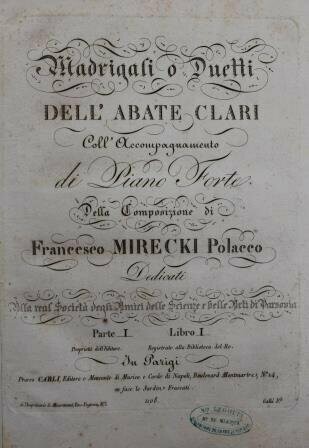 Madrigali o Duetti
DELL' ABATE CLARI
Coll' Accompagnamento
di Piano Forte
Della Composizione di
Francesco MIRECKI Polacco
Dedicati
Alla real Società degli Amici delle Scienze e belle Arti di Varsovia
Parte I Libro I
Proprietà dell'Editore. Registrato alla Biblioteca del Re.
In Parigi
Presso CARLI, Editore e Mercante di Musica e Corde di Napoli, Boulevard Montmartre, N.º 14,
en face le Jardin Frascati.